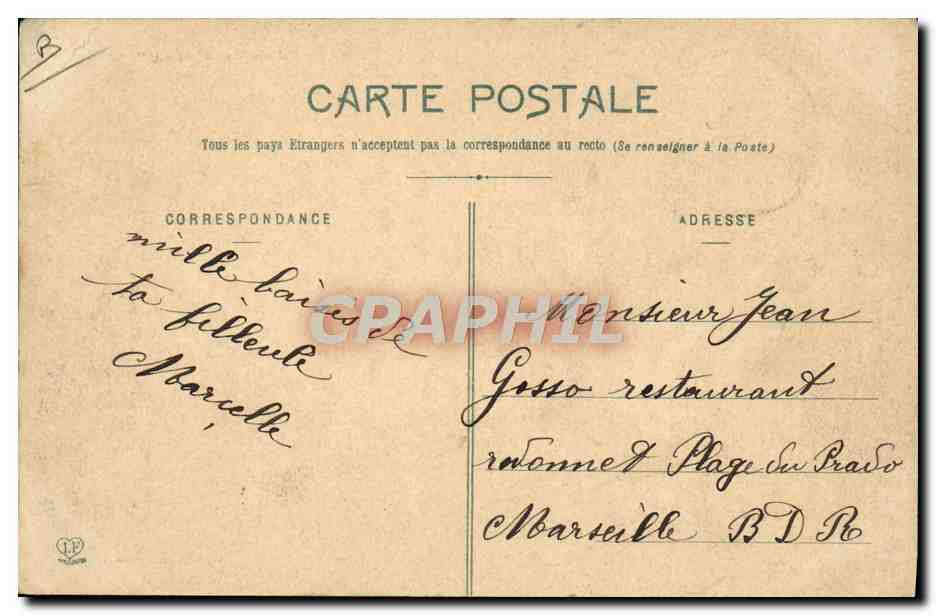 B
CARTE POSTALE
Tous les pays Etrangers n'acceptent pas la correspondance au recto (Se renseigner à la Poste)
CORRESPONDANCE
mille baises de
ta filleule
Marcelle
ADRESSE
Monsieur Jean
Gosso restaurant
rodonnet Plage du Prado
Marseille B D R
LF
CPAPHIL